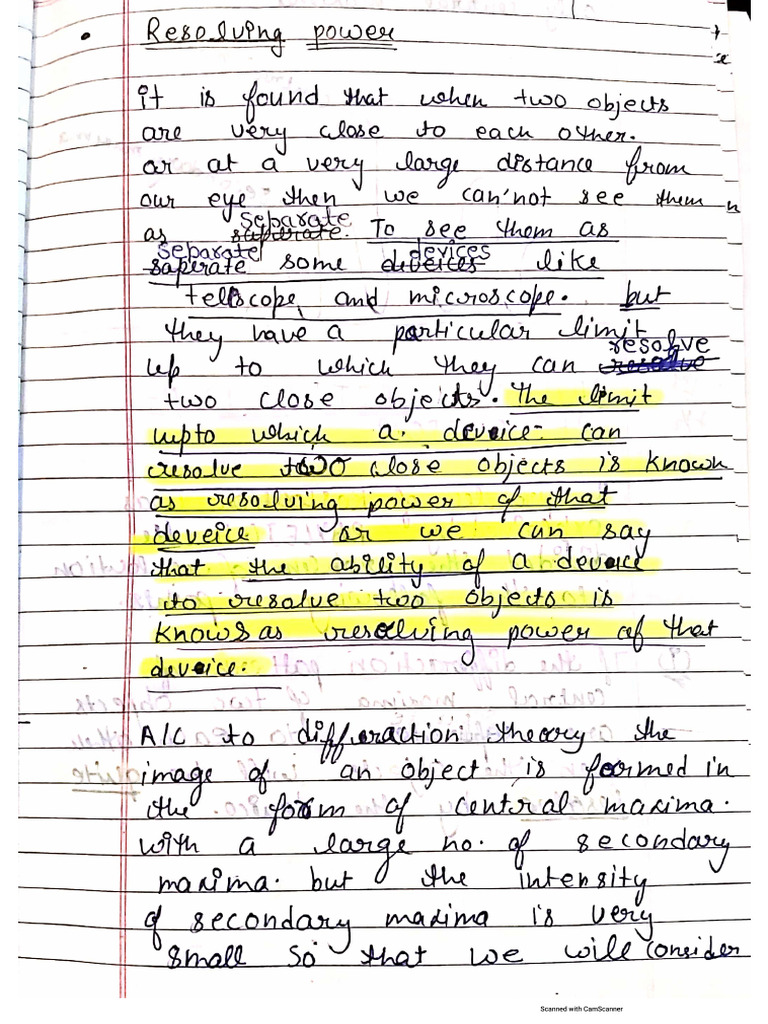 Resolving power
it is found that when two objects
are very close to each other.
or at a very large distance from
our eye then we can'not see them
as separate. To see them as
separate some devices like
telescope and microscope. but
they have a particular limit
up to which they can resolve
two close objects. the limit
upto which a deveice can
resolve two close objects is known
as resolving power of that
deveice or we can say
that the ability of a deveice
to resolve two objects is
knows as resolving power of that
deveice.
A/C to diffraction theory the
image of an object is formed in
the form of central maxima.
with a large no. of secondary
maxima. but the intensity
of secondary maxima is very
small so that we will consider
Scanned with CamScanner